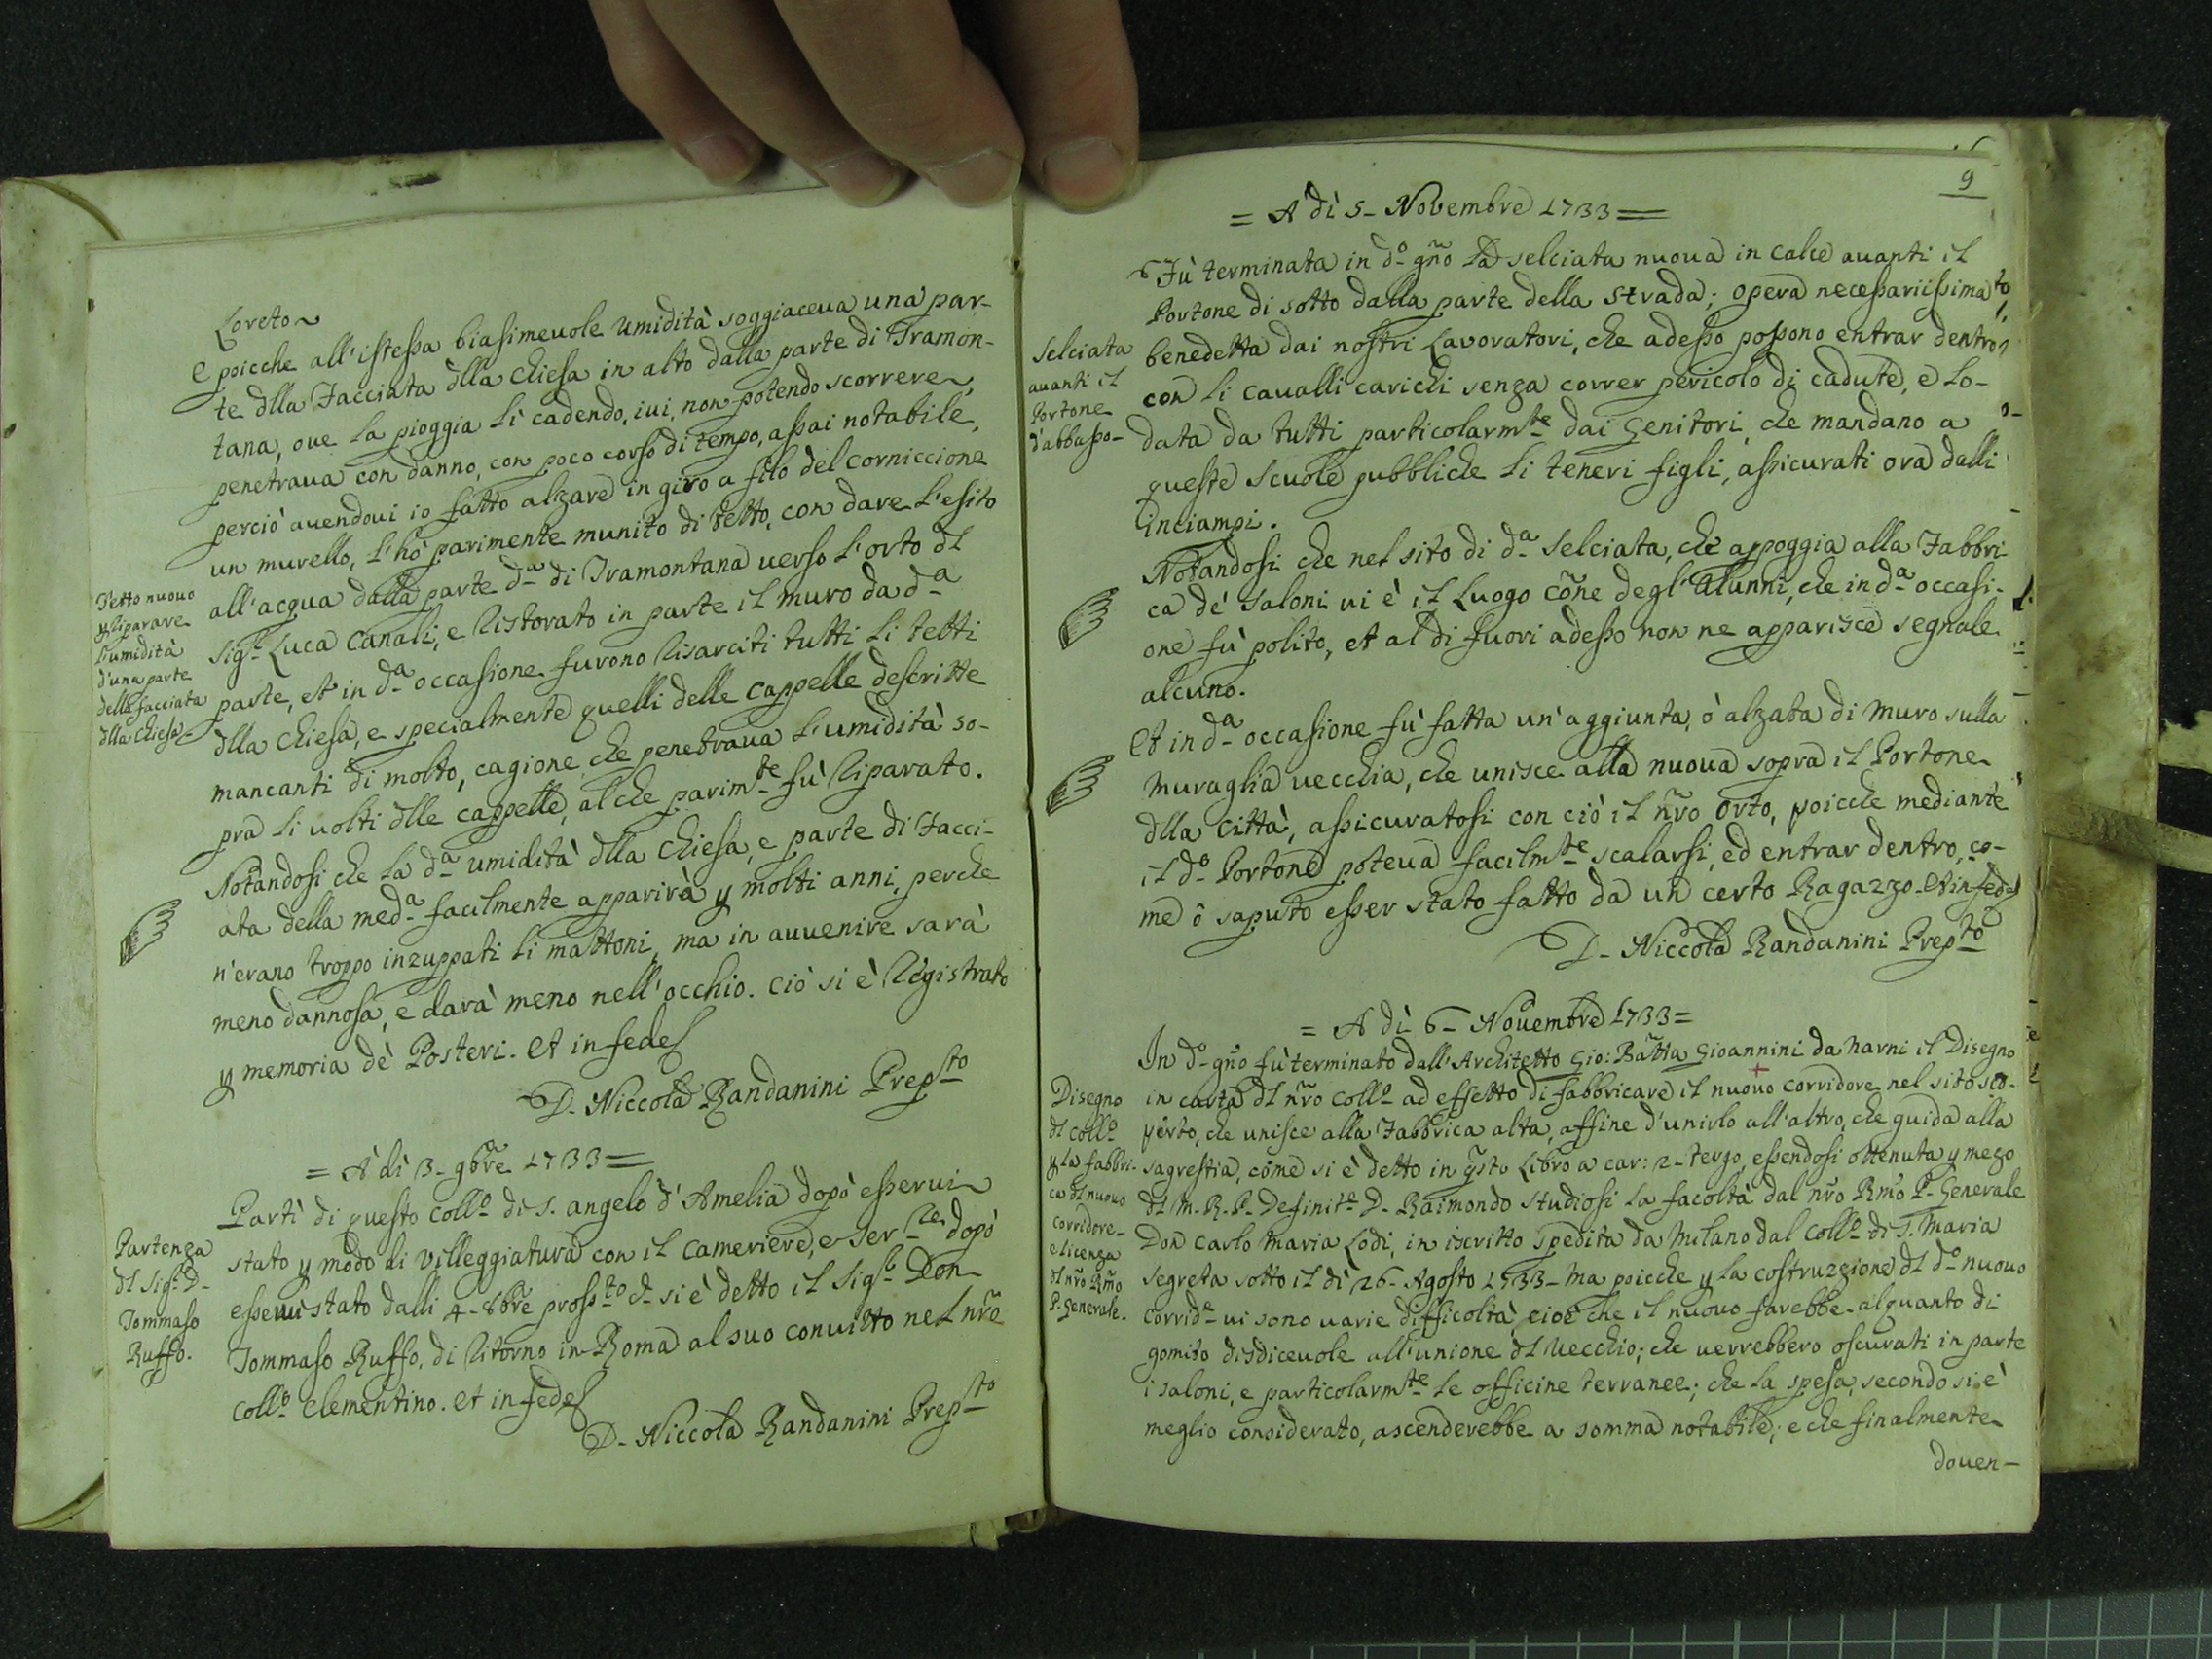 Loreto
E poicche all'istessa biasimevole umidità soggiaceva una par-
te dlla Facciata dlla Chiesa in alto dalla parte di Tramon-
tana, ove la pioggia li cadendo, ivi, non potendo scorrere,
penetrava con danno, con poco corso di tempo, assai notabile,
perciò avendovi io fatto alzare in giro a filo del corniccione
un murello, l'hò parimente munito di tetto, con dare l'esito
all'acqua dalla parte d.a di Tramontana verso l'orto dl
Sig.r Luca Canali, e ristorato in parte il muro da d.a
parte, et in d.a occasione furono risarciti tutti li tetti
dlla Chiesa, e specialmente quelli delle Cappelle descritte
mancanti di molto, cagione che penetrava l'umidità so-
pra li volti dlle Cappelle, al che parim.te fù riparato.
Notandosi che la d.a umidità dlla Chiesa, e parte di Facci-
ata della med.a facilmente apparirà p molti anni, perche
n'erano troppo inzuppati li mattoni, ma in avvenire sarà
meno dannosa, e darà meno nell'occhio. Ciò si è registrato
p memoria dè Posteri. Et in fede
D. Niccola Randanini Prep.to
Tetto nuovo
p riparare
l'umidità
d'una parte
della facciata
dlla Chiesa
= A di 3 - 9bre 1733 =
Partì di questo Coll.o di S. Angelo d'Amelia dopò esservi
stato p modo di villeggiatura con il Cameriere, e Ser.re dopò
essevi stato dalli 4 - 8bre pross.to d. si è detto il Sig.r Don
Tommaso Ruffo, di ritorno in Roma al suo convitto nel nro
Coll.o Clementino. et in fede
D. Niccola Randanini Prep.to
Partenza
dl Sig.r D.
Tommaso
Ruffo.
9
= A dì 5 - Novembre 1733 =
Fù terminata in d.o gño la selciata nuova in calce avanti il
Portone di sotto dalla parte della strada; opera necessariissima
benedetta dai nostri Lavoratori, che adesso possono entrar dentro
con li cavalli carichi senza correr pericolo di cadute, e lo-
data da tutti particolarm.te dai Genitori, che mandano a
queste scuole pubbliche li teneri figli, assicurati ora dalli
inciampi.
Selciata
avanti il
Portone
d'abbasso
Notandosi che nel sito di d.a Selciata, che appoggia alla Fabbri
ca de' saloni vi è il Luogo cõne degl'Alunni, che in d.a occasi-
one fù polito, et al di fuori adesso non ne apparisce segnale
alcuno.
Et in d.a occasione fù fatta un'aggiunta, ò alzata di muro sulla
muraglia vecchia, che unisce alla nuova sopra il Portone
dlla Città, assicuratosi con ciò il nro Orto, poicche mediante
il d.o Portone poteva facilm.te scalarsi, ed entrar dentro, co-
me ò saputo esser stato fatto da un certo Ragazzo. Et in fede
D. Niccola Randanini Prep.to
= A dì 6 - Novembre 1733 =
In d.o gño fù terminato dall'Architetto Gio: Batta Gioannini da Narni il Disegno
in carta dl nro Coll.o ad effetto di fabbricare il nuovo corridore nel sito sco-
perto, che unisce alla Fabbrica alta, affine d'unirlo all'altro, che guida alla
sagrestia, come si è detto in qsto Libro a car: 2 - tergo, essendosi ottenuta p mezo
dl M. R. P. Definit.e D. Raimondo Studiosi la facoltà dal nro Rmo P. Generale
Don Carlo Maria Lodi, in iscritto spedita da Milano dal Coll.o di S. Maria
Segreta sotto il dì 26 - Agosto 1733 - Ma poicche p la costruzione dl d.o nuovo
corrid.e vi sono varie difficoltà, cioè che il nuovo farebbe alquanto di
gomito disdicevole all'unione dl vecchio; che verrebbero oscurati in parte
i saloni, e particolarm.te le officine terranee; che la spesa, secondo si è
meglio considerato, ascenderebbe a somma notabile; e che finalmente
doven-
Disegno
dl Coll.o
p la fabbri-
ca dl nuovo
Corridore
e licenza
dl nro Rmo
P. Generale.